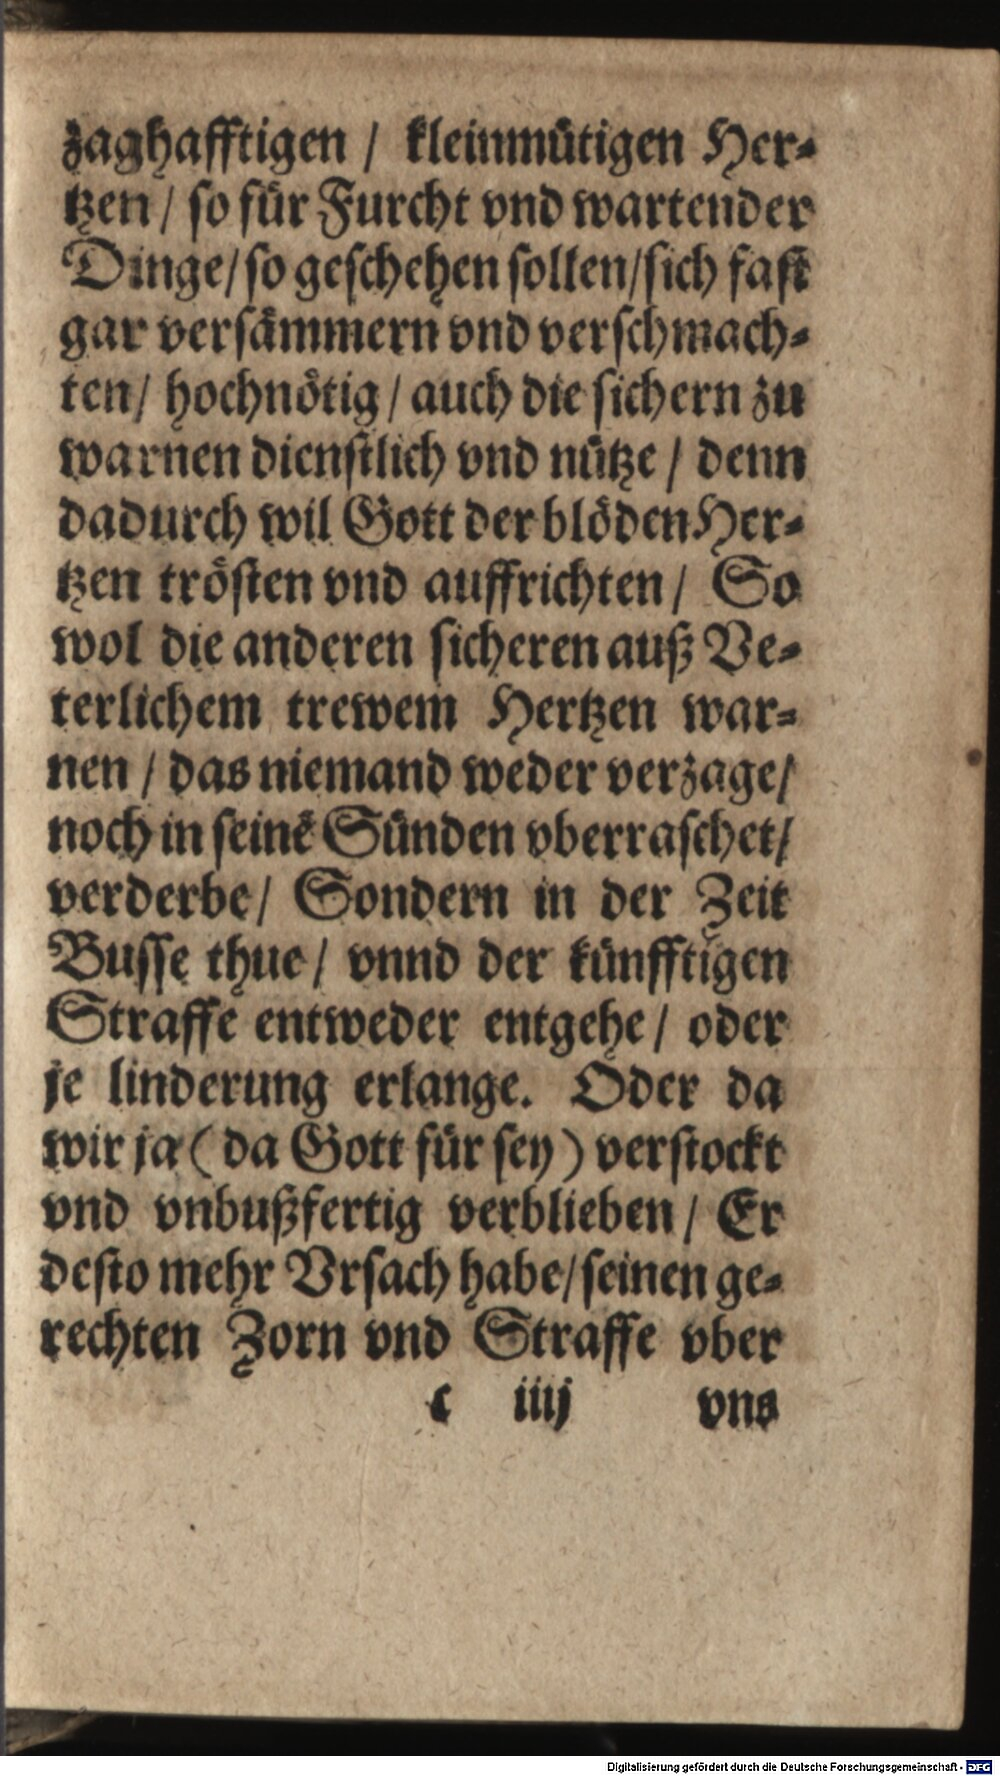 zaghafftigen / kleinmütigen Her-
tzen / so für Furcht vnd wartender
Dinge / so geschehen sollen / sich fast
gar versämmern vnd verschmach-
ten / hochnötig / auch die sichern zu
warnen dienstlich vnd nütze / denn
dadurch wil Gott der blöden Her-
tzen trösten vnd auffrichten / So
wol die anderen sicheren auß Ve-
terlichem trewem Hertzen war-
nen / das niemand weder verzage /
noch in seinē Sünden vberraschet /
verderbe / Sondern in der Zeit
Busse thue / vnnd der künfftigen
Straffe entweder entgehe / oder
je linderung erlange. Oder da
wir ja ( da Gott für sey ) verstockt
vnd vnbußfertig verblieben / Er
desto mehr Vrsach habe / seinen ge-
rechten Zorn vnd Straffe vber
c iiij vns
Digitalisierung gefördert durch die Deutsche Forschungsgemeinschaft - DFG